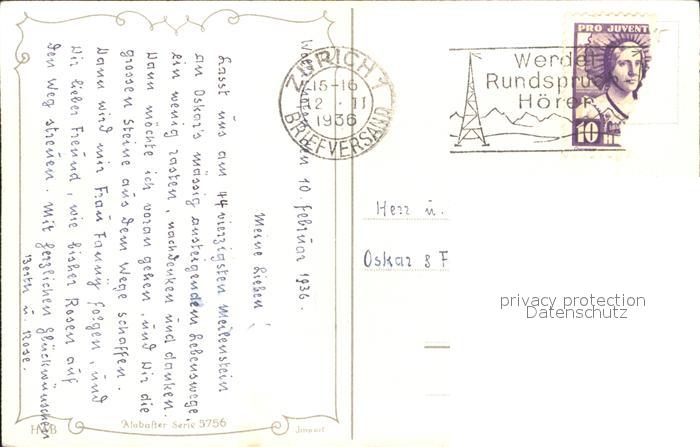 Zürich, den 10. Februar 1936.
Meine Lieben!
Lasst uns am 44 vierzigsten Meilenstein
an Oskar's mässig ansteigendem Lebenswege
ein wenig rasten, nachdenken und danken.
Dann möchte ich voran gehen, und Dir die
grossen Steine aus dem Wege schaffen.
Dann wird mir Frau Fanny folgen, und
Dir lieber Freund, wie bisher Rosen auf
den Weg streuen. Mit herzlichen Glückwünschen
Berth u. Rose.
H B
Alabaster Serie 5756
Import
ZÜRICH 1
15-16
12. II
1936
BRIEFVERSAND
Werdet
Rundspruch
Hörer
PRO JUVENT
10
Herr u.
Oskar & F
privacy protection
Datenschutz